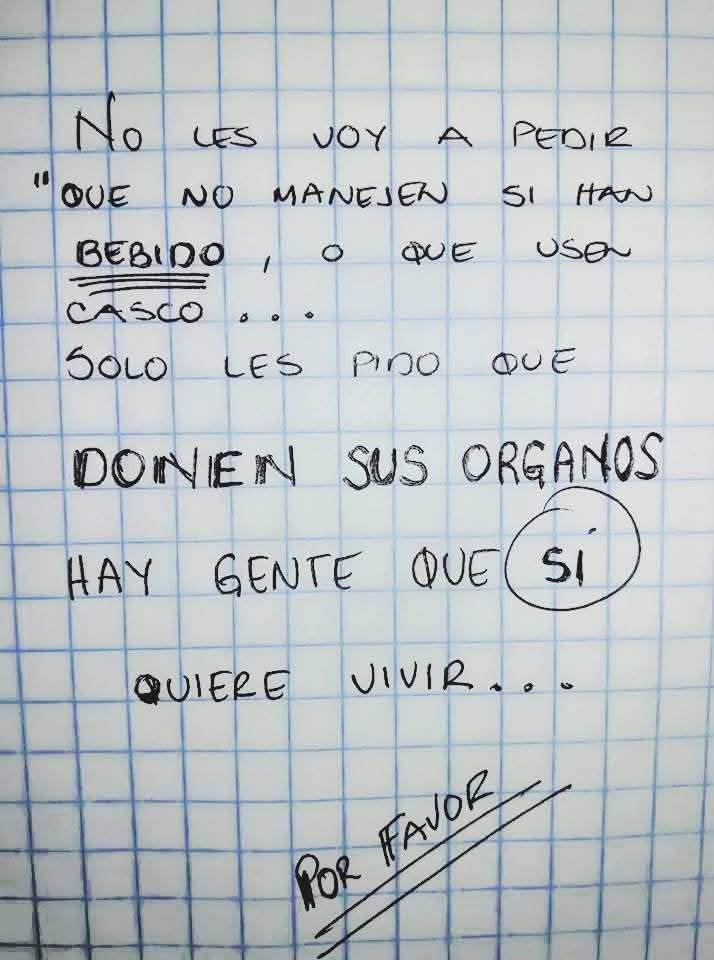 No LES VOY A PEDIR
"QUE NO MANEJEN SI HAN
BEBIDO, O QUE USEN
CASCO...
SOLO LES PIDO QUE
DONEN SUS ORGANOS
HAY GENTE QUE SÍ
QUIERE VIVIR...
POR FAVOR